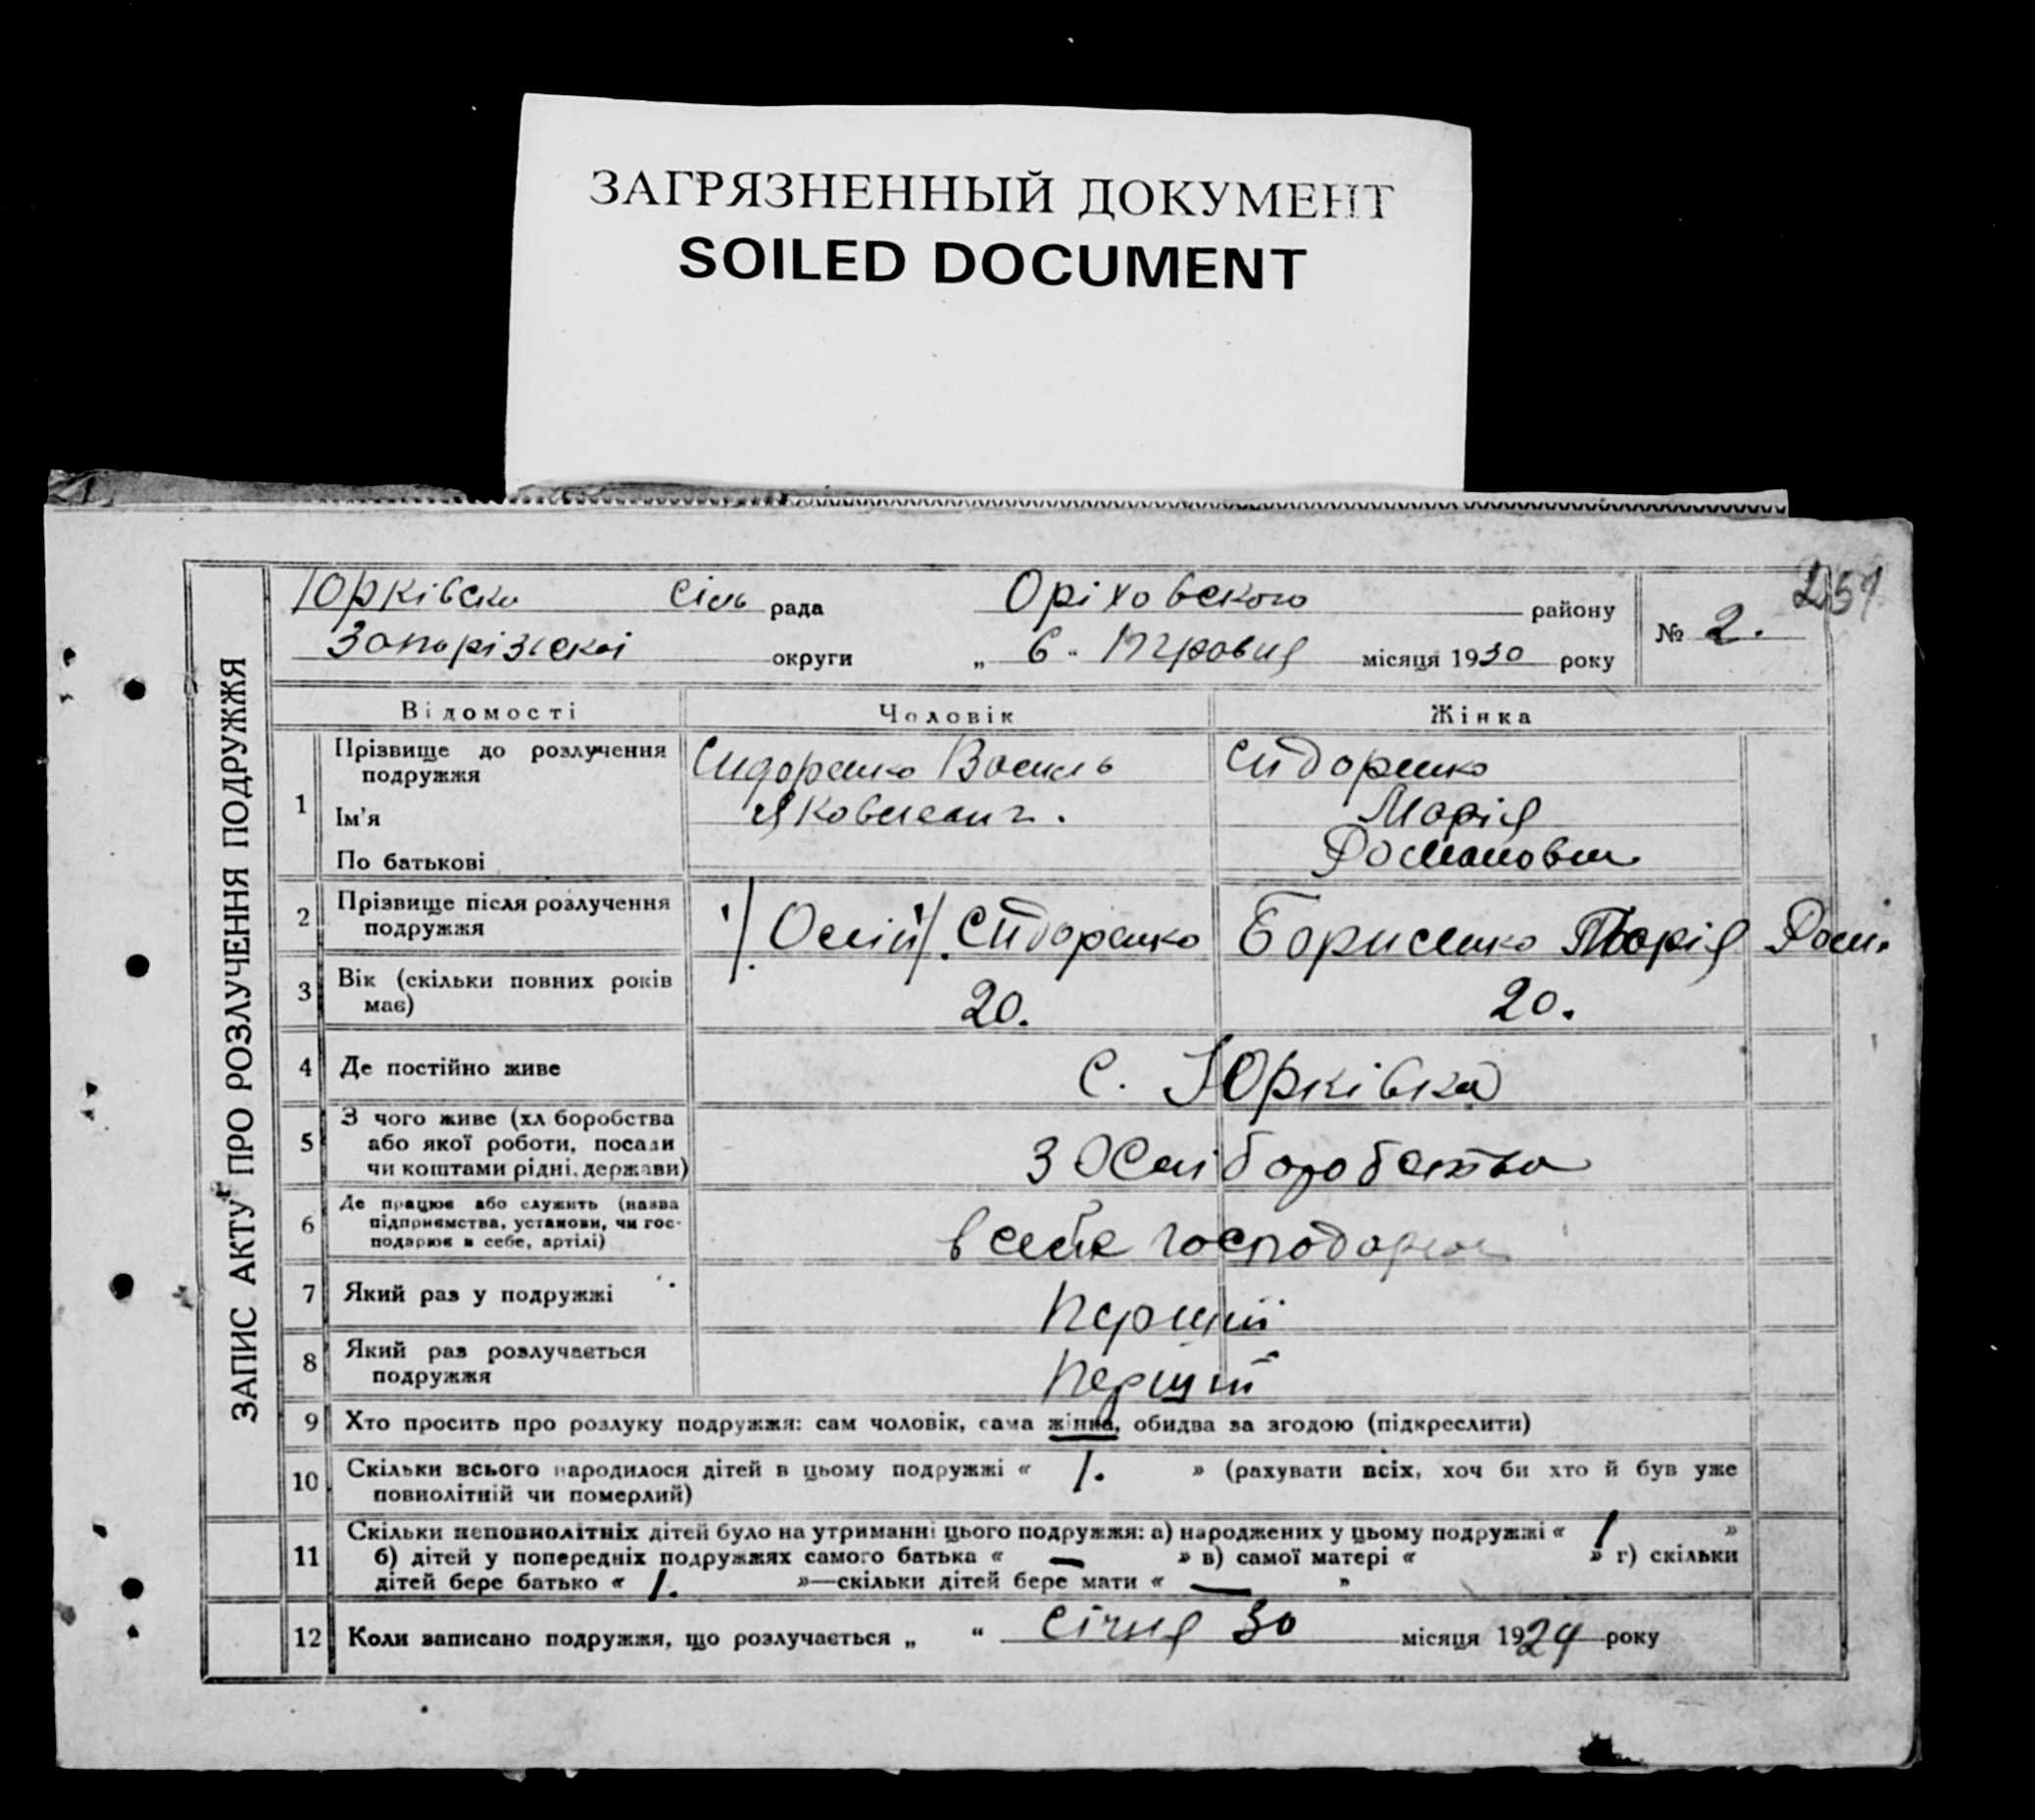 ЗАГРЯЗНЕННЫЙ ДОКУМЕНТ
SOILED DOCUMENT
ЗАПИС АКТУ ПРО РОЗЛУЧЕННЯ ПОДРУЖЖЯ
Юрківска сіль рада Оріховского району
№ 2.
Запорізскої округи „ 6 " місяця 1930 року
Відомості Чоловік Жінка
1 Прізвище до розлучення подружжя Сидоренко Василь Сидоренко
Ім'я Яковлевич. Марія
По батькові Романовна
2 Прізвище після розлучення подружжя Сидоренко Борисенко Марія Ром.
3 Вік (скільки повних років має) 20. 20.
4 Де постійно живе с. Юрківка
5 З чого живе (хліборобства
або якої роботи, посади
чи коштами рідні, держави)
6 Де працює або служить (назва
підприємства, установи, чи гос-
подарює в себе, артілі) в себе
7 Який раз у подружжі Перший
8 Який раз розлучається подружжя Перший
9 Хто просить про розлуку подружжя: сам чоловік, сама жінка, обидва за згодою (підкреслити)
10 Скільки всього народилося дітей в цьому подружжі « 1. » (рахувати всіх, хоч би хто й був уже
повнолітній чи померлий)
11 Скільки неповнолітніх дітей було на утриманні цього подружжя: а) народжених у цьому подружжі « 1 »
б) дітей у попередніх подружжях самого батька « — » в) самої матері « » г) скільки
дітей бере батько « 1. »—скільки дітей бере мати « — »
12 Коли записано подружжя, що розлучається „ " Січня 30 місяця 1929 року